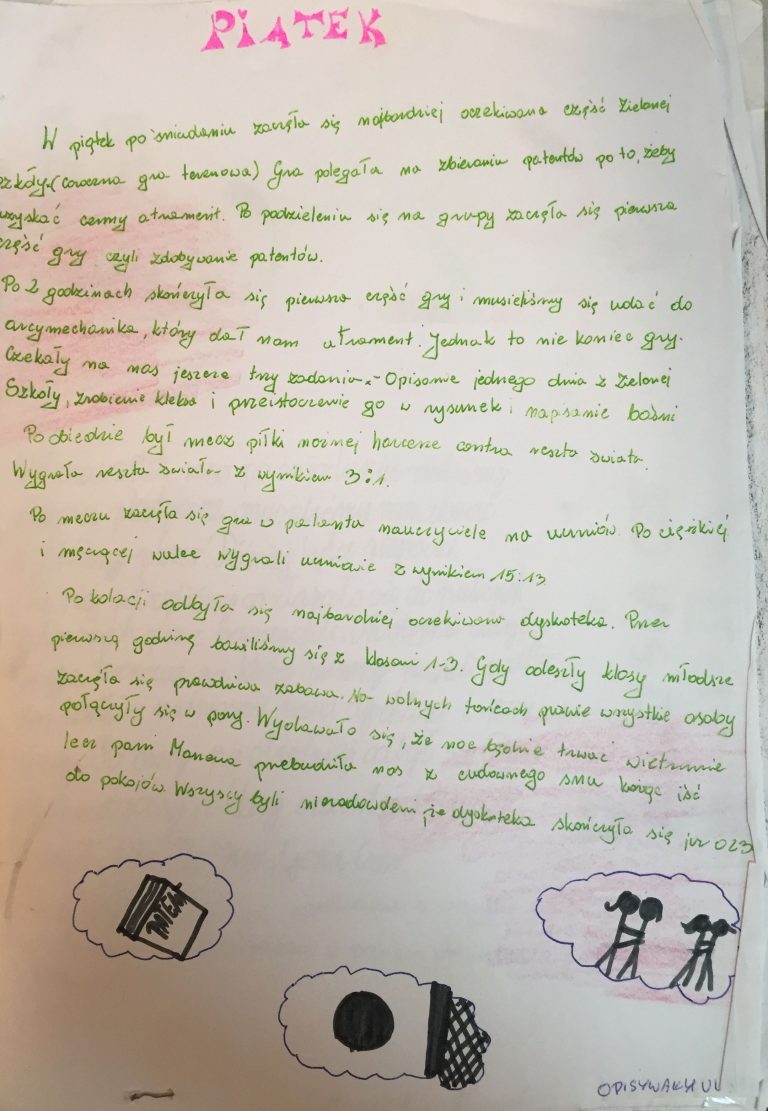 PIĄTEK
W piątek po śniadaniu zaczęła się najbardziej oczekiwana część Zielonej
szkoły. (coroczna gra terenowa) Gra polegała na zbieraniu patentów po to, żeby
uzyskać cenny atrament. Po podzieleniu się na grupy zaczęła się pierwsza
część gry czyli zdobywanie patentów.
Po 2 godzinach skończyła się pierwsza część gry i musieliśmy się udać do
arcymechanika, który dał nam atrament. Jednak to nie koniec gry.
Czekały na nas jeszcze trzy zadania - Opisanie jednego dnia z Zielonej
Szkoły, zrobienie kleksa i przeistoczenie go w rysunek i napisanie baśni
Po obiedzie był mecz piłki nożnej harcerze contra reszta świata.
Wygrała reszta świata z wynikiem 3:1.
Po meczu zaczęła się gra w palanta nauczyciele na uczniów. Po ciężkiej
i męczącej walce wygrali uczniowie z wynikiem 15:13
Po kolacji odbyła się najbardziej oczekiwana dyskoteka. Przez
pierwszą godzinę bawiliśmy się z klasami 1-3. Gdy odeszły klasy młodsze
zaczęła się prawdziwa zabawa. Na wolnych tańcach prawie wszystkie osoby
połączyły się w pary. Wydawało się, że noc będzie trwać wiecznie
lecz pani przebudziła nas z cudownego snu każąc iść
do pokojów. Wszyscy byli niezadowoleni że dyskoteka skończyła się już o 23